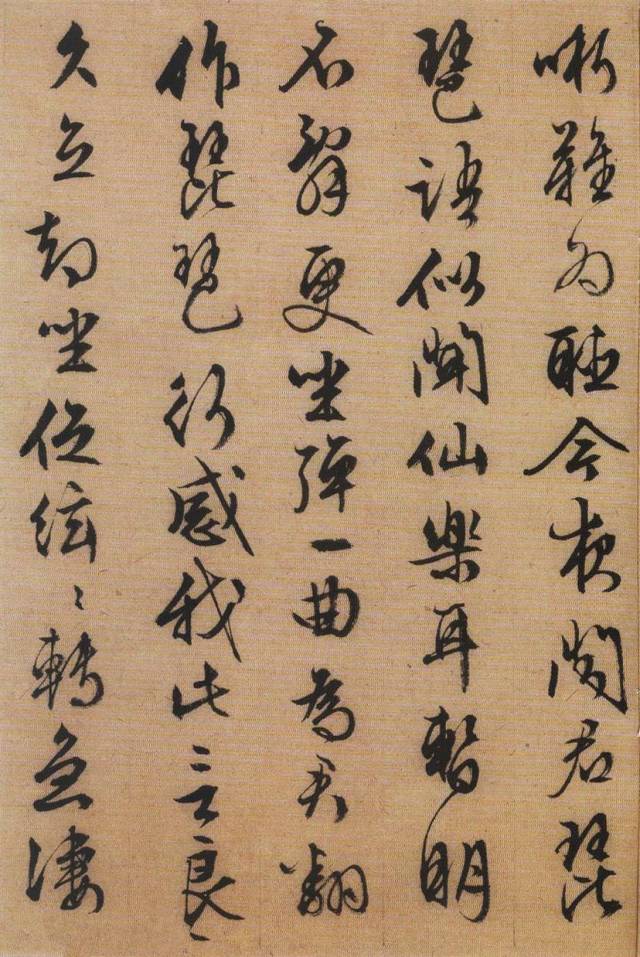 哳難為聽今夜聞君琵
琶語似聞仙樂耳暫明
不辭更坐彈一曲為君翻
作琵琶行感我此言良
久立却坐促絃〻轉急凄